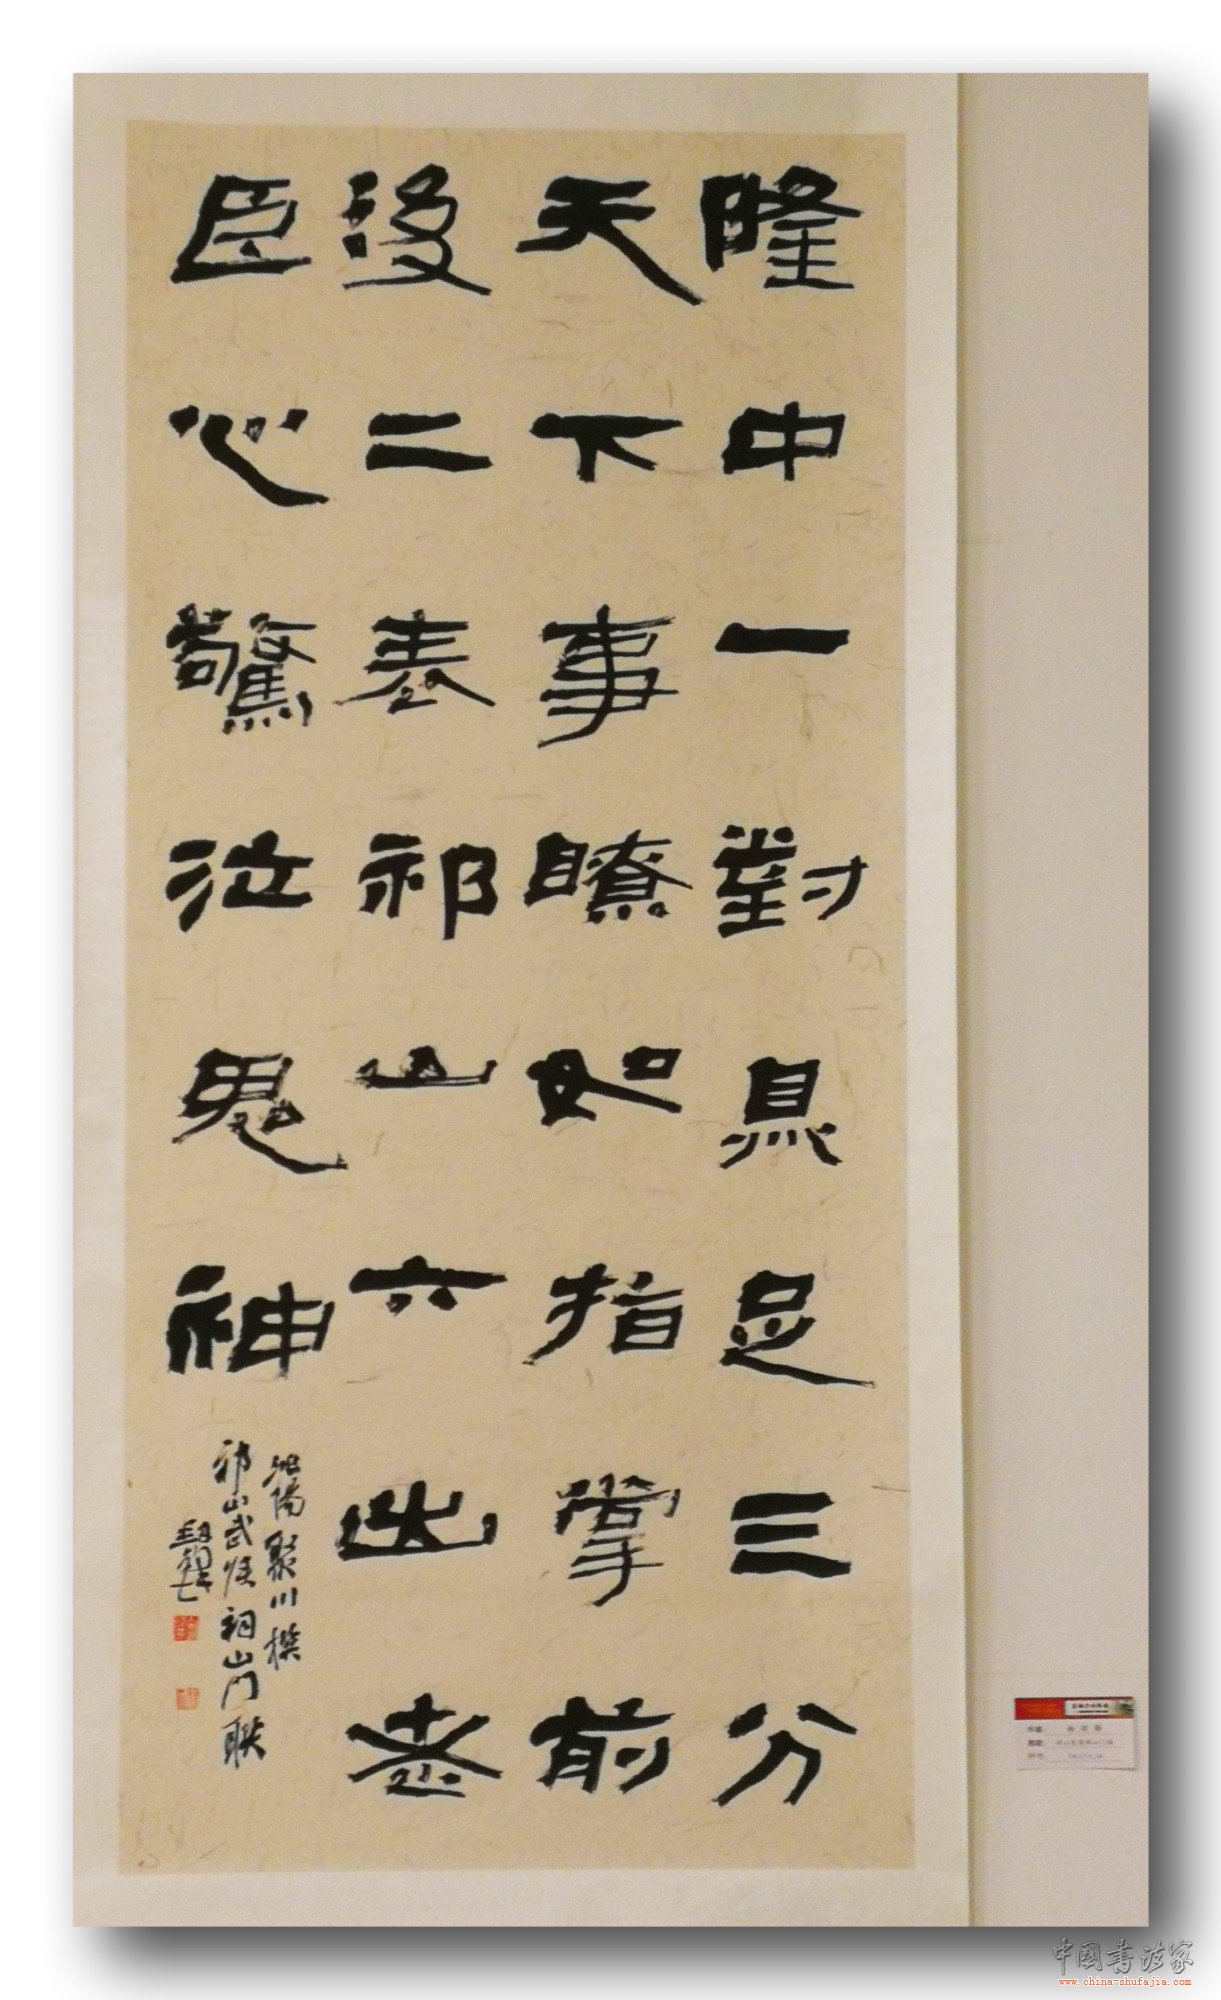 隆中一對具足三分
天下事瞭如指掌前
後二表祁山六出老
臣心驚泣鬼神
陽聚川撰
祁山武侯祠山門聯
中國書法家
www.china-shufajia.com